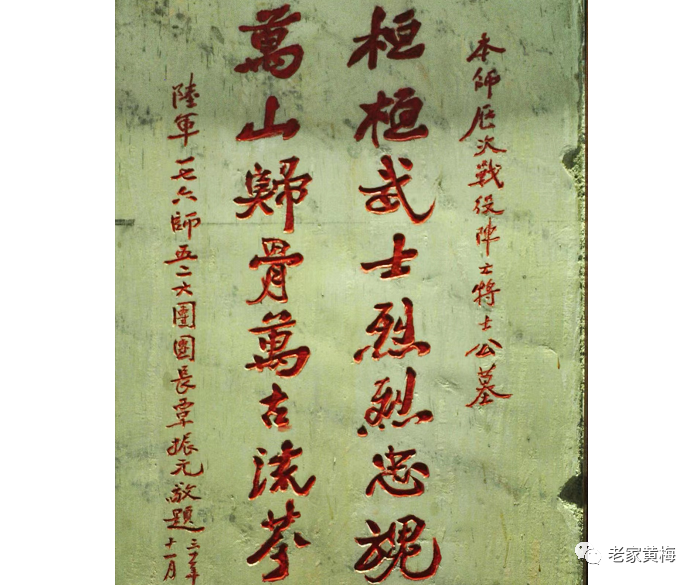 本師歷次戰役陣亡將士公墓
桓桓武士烈烈忠魂
萬山歸骨萬古流芬
陸軍一七六師五二六團團長覃振元敬題
十一月
老家黄梅